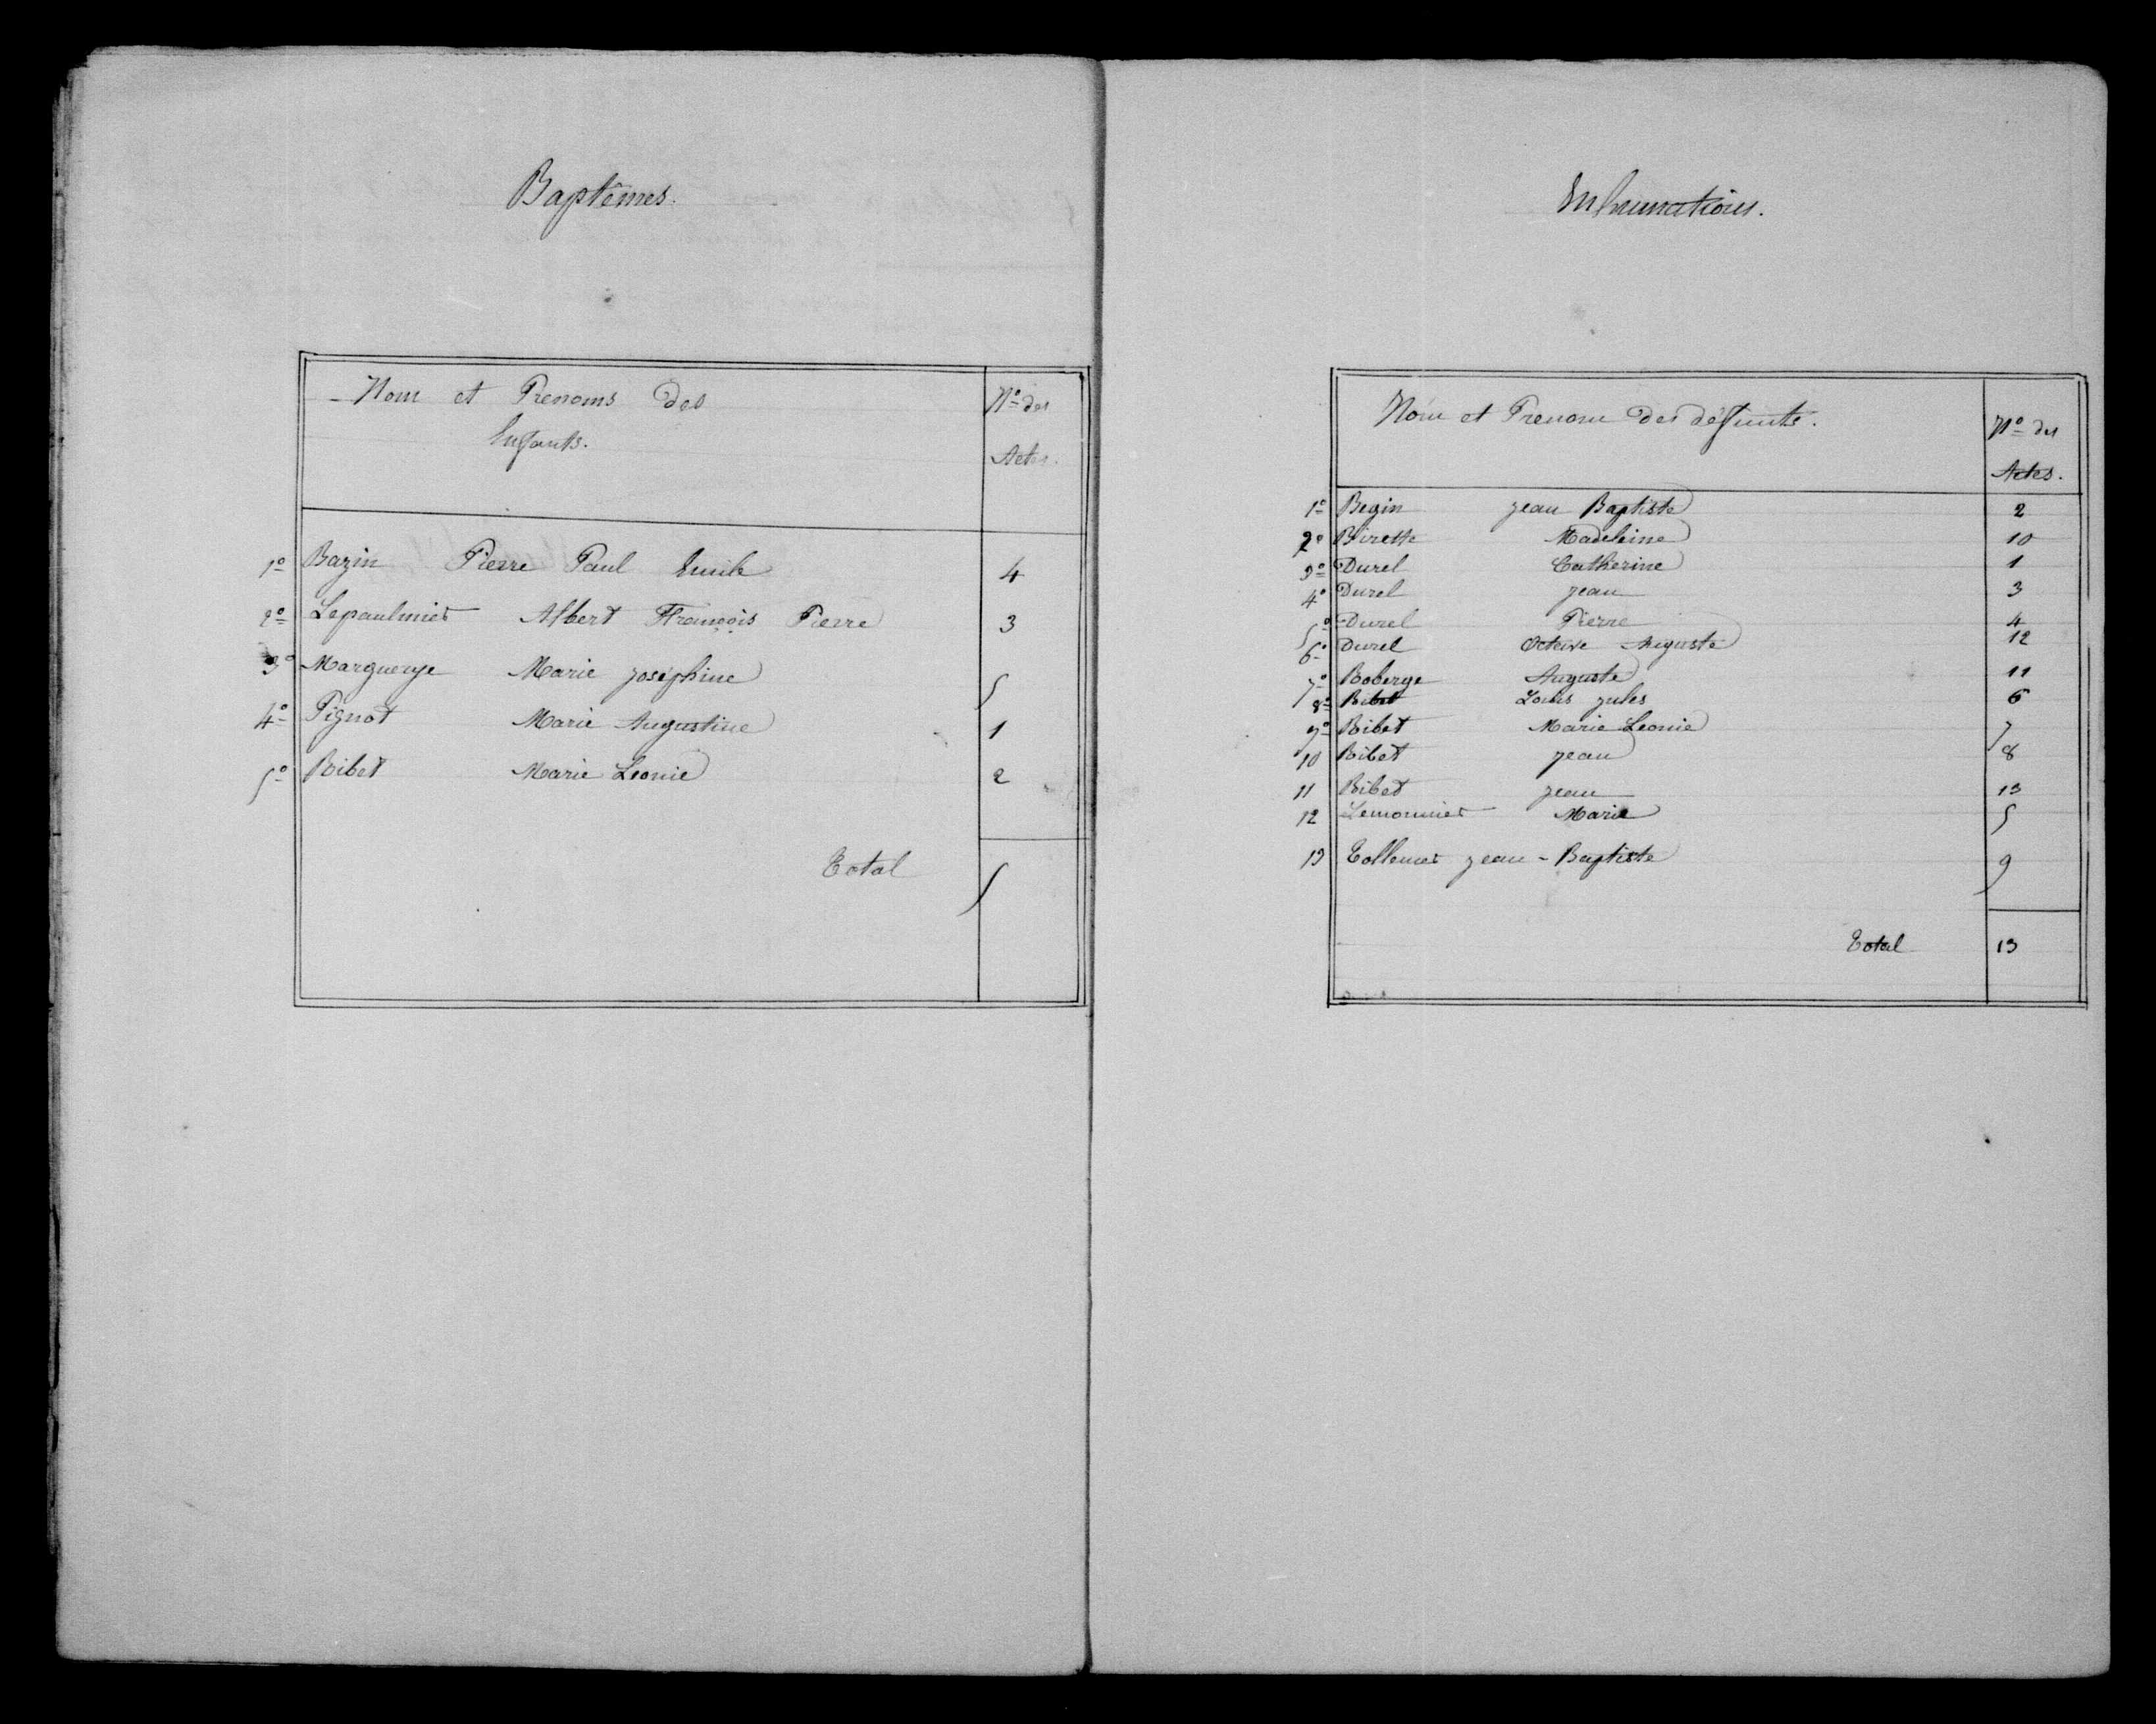 Baptêmes.
Nom et Prenoms des
Enfants.
Nº des
Actes.
1º Bazin Pierre Paul Emile 4
2º Lepaulmier Albert François Pierre 3
3º Marguerye Marie josephine 5
4º Pignot Marie Augustine 1
5º Bibet Marie Leonie 2
Total 5
Inhumations.
Nom et Prenom des défunts.
Nº des
Actes.
1º Begin jean Baptiste 2
2º Birette Madeleine 10
3º Durel Catherine 1
4º Durel jean 3
5º Durel Pierre 4
6º Durel Octave Auguste 12
7º Roberge Auguste 11
8º Bibet Louis jules 6
9º Bibet Marie Leonie 7
10 Bibet jean 8
11 Bibet jean 13
12 Lemonnier Marie 5
13 Tollemer jean-Baptiste 9
Total 13